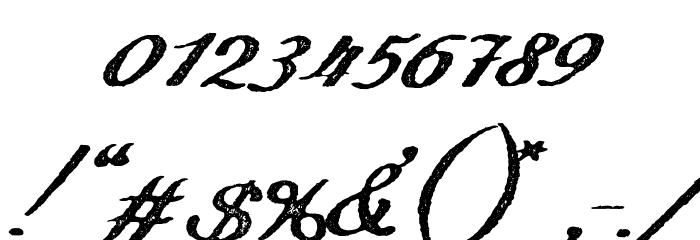 0123456789
!“#$%&()*,-./